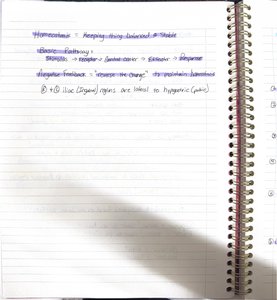 Homeostasis = Keeping thing balanced & stable
Basic Pathway:
Stimulus → receptor → control center → Effector → Response
Negative Feedback = "reverse the change" to maintain homeostasis
(R) + (L) iliac (Inguinal) regions are lateral to hypogastric (pubic)